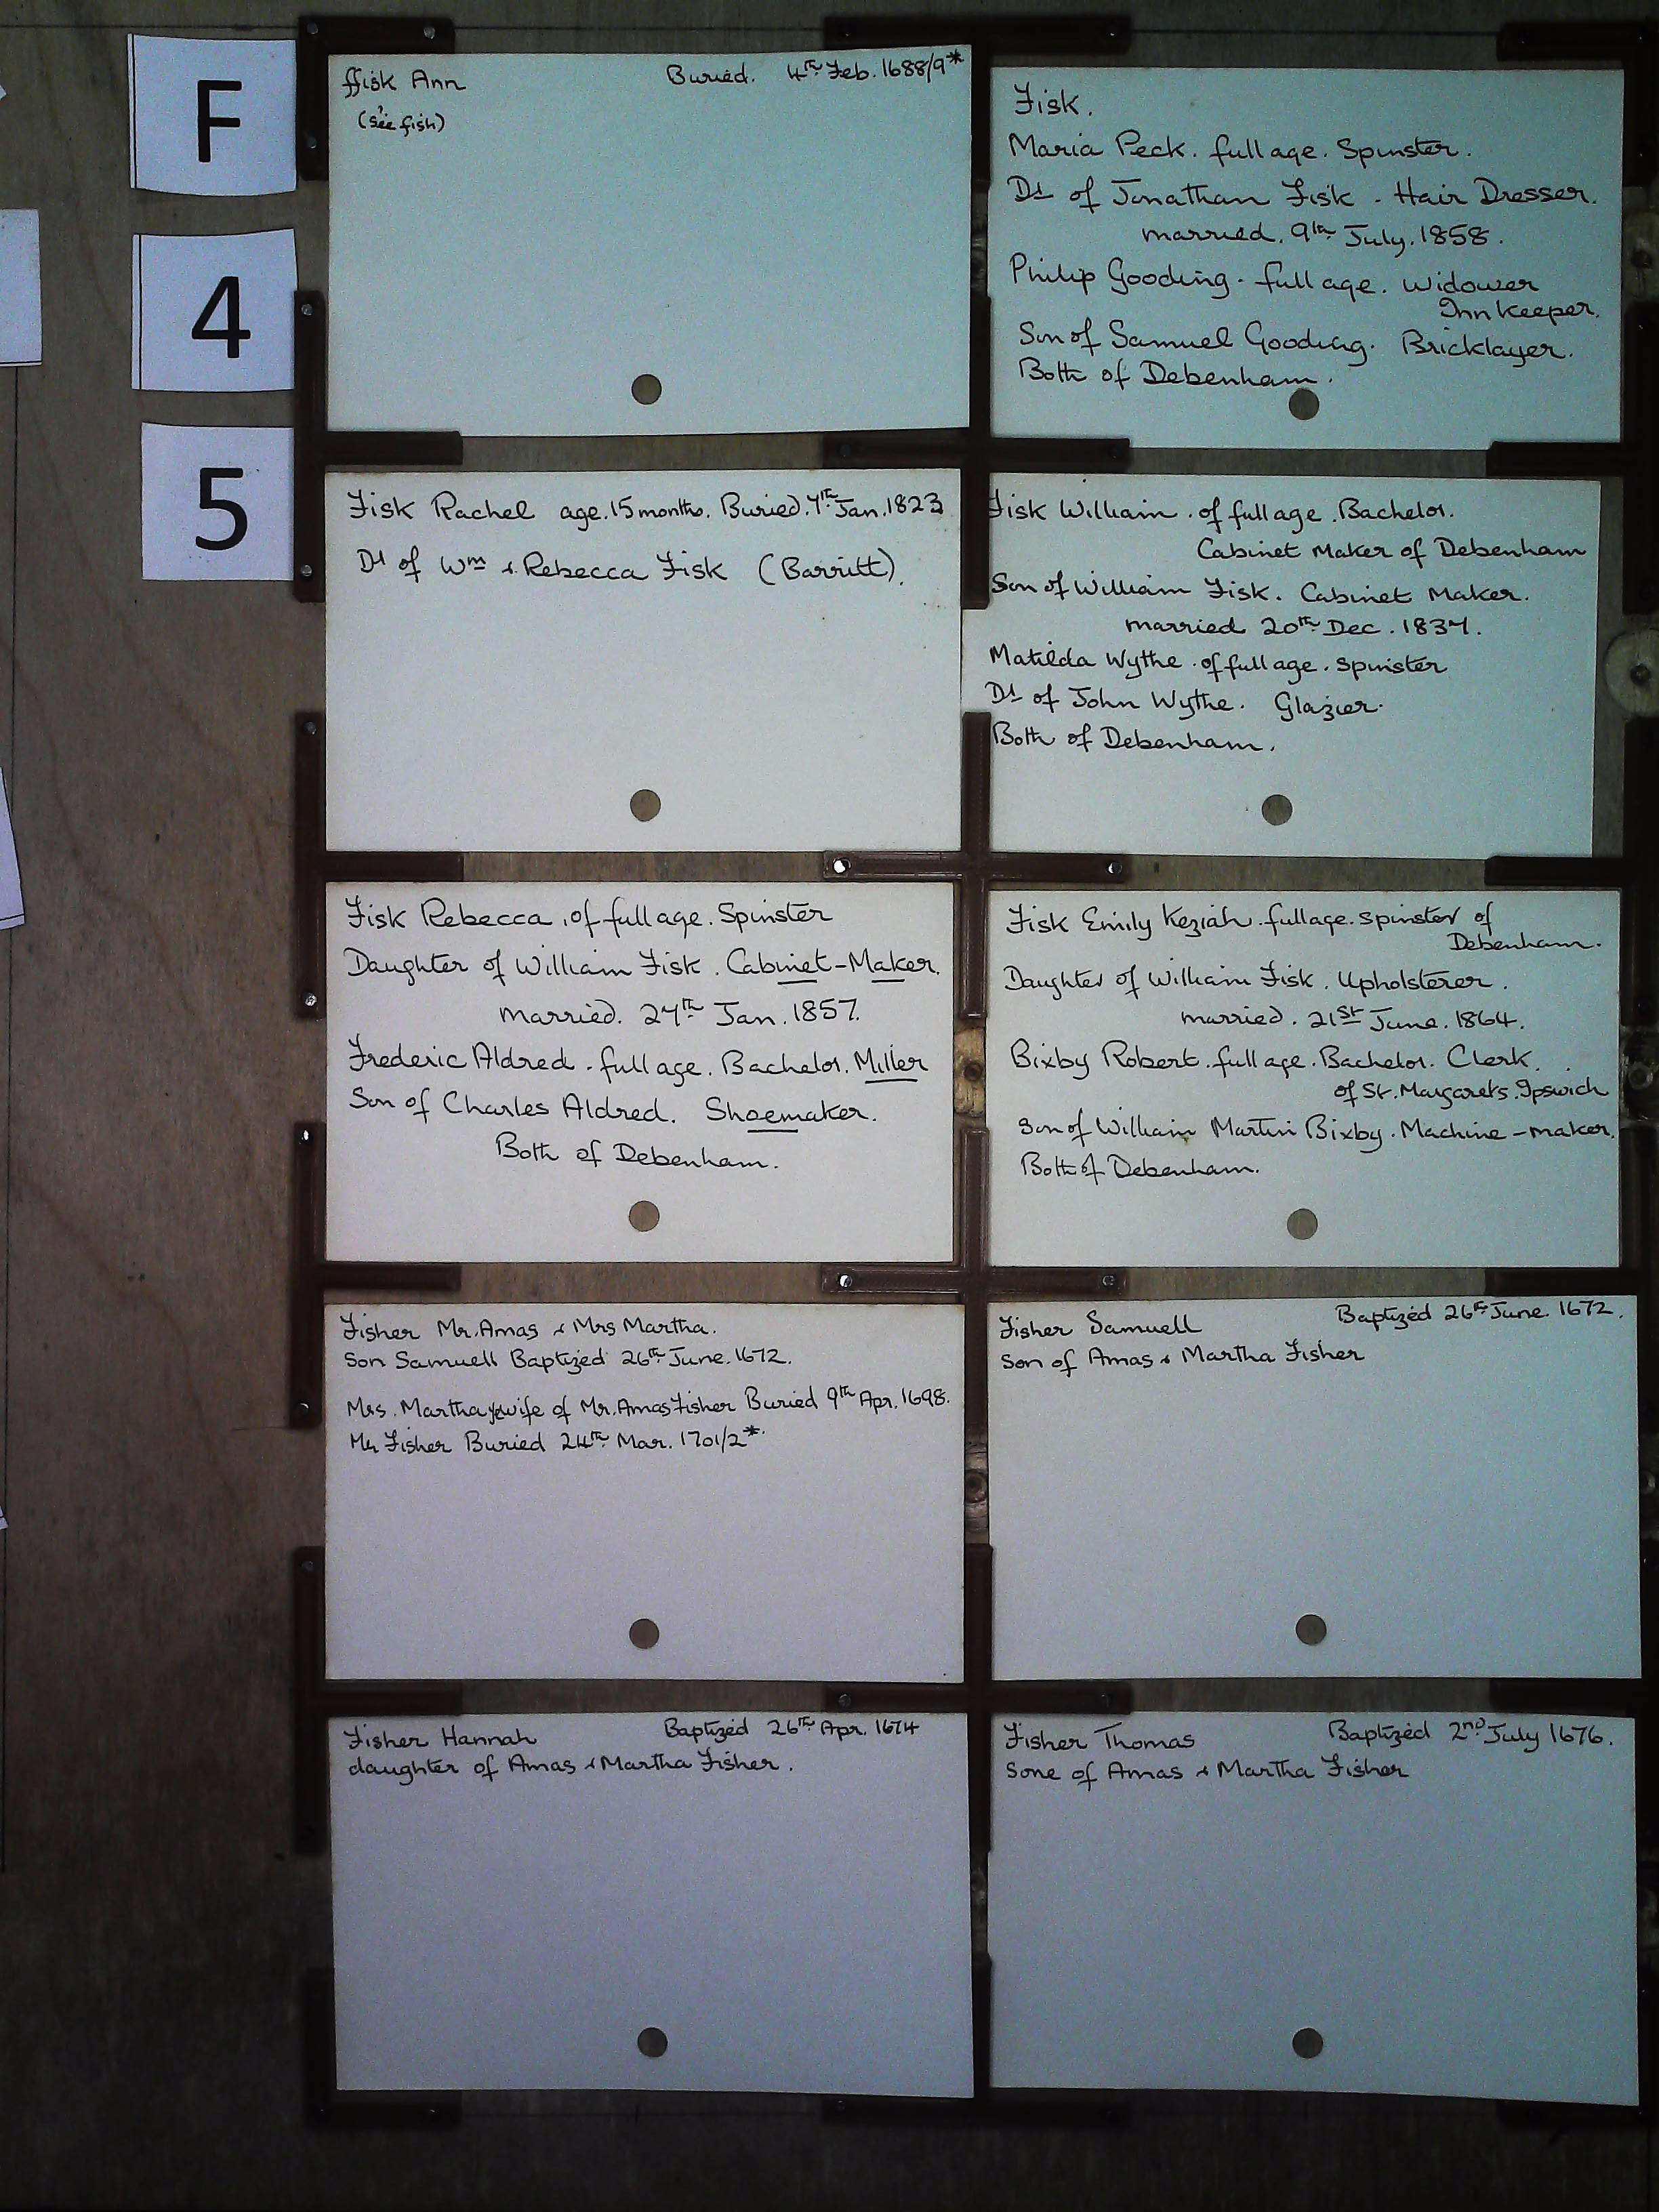 F
4
5
ffisk Ann Buried. 4th Feb. 1688/9*
(see fish)
Fisk.
Maria Peck. full age. Spinster.
Dt of Jonathan Fisk. Hair Dresser.
married. 9th July. 1858.
Philip Gooding. full age. Widower
Inn keeper.
Son of Samuel Gooding. Bricklayer.
Both of Debenham.
Fisk Rachel age. 15 months. Buried. 7th Jan. 1823
Dt of Wm & Rebecca Fisk (Barritt).
Fisk William. of full age. Bachelor.
Cabinet Maker of Debenham
Son of William Fisk. Cabinet Maker.
married 20th Dec. 1837.
Matilda Wythe. of full age. spinster
Dt of John Wythe. Glazier.
Both of Debenham.
Fisk Rebecca. of full age. Spinster
Daughter of William Fisk. Cabinet-Maker.
married. 27th Jan. 1857.
Frederic Aldred. full age. Bachelor. Miller
Son of Charles Aldred. Shoemaker.
Both of Debenham.
Fisk Emily Keziah. full age. spinster of
Debenham.
Daughter of William Fisk. Upholsterer.
married. 21st June. 1864.
Bixby Robert. full age. Bachelor. Clerk.
of St. Margarets. Ipswich
Son of William Martin Bixby. Machine-maker.
Both of Debenham.
Fisher Mr. Amas & Mrs Martha.
Son Samuell Baptized 26th June. 1672.
Mrs. Martha ye wife of Mr. Amas Fisher Buried 9th Apr. 1698.
Mr Fisher Buried 24th Mar. 1701/2*
Fisher Samuell Baptized 26th June. 1672.
Son of Amas & Martha Fisher
Fisher Hannah Baptized 26th Apr. 1674
daughter of Amas & Martha Fisher.
Fisher Thomas Baptized 2nd July 1676.
Sone of Amas & Martha Fisher